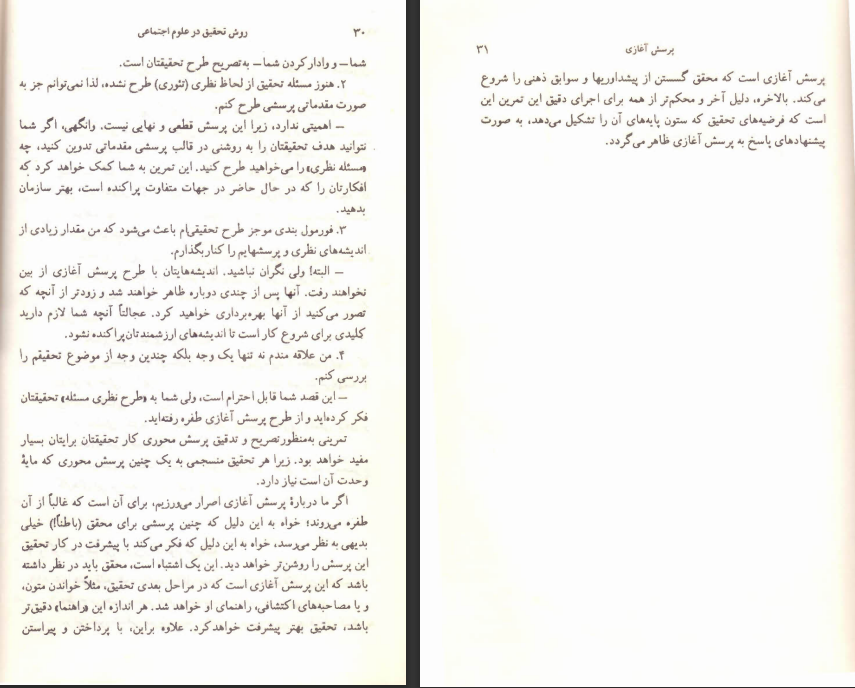 ۳۰ روش تحقیق در علوم اجتماعی
شما— و وادار کردن شما— به‌تصریح طرح تحقیقتان است.
۲. هنوز مسئله تحقیق از لحاظ نظری (تئوری) طرح نشده، لذا نمی‌توانم جز به
صورت مقدماتی پرسشی طرح کنم.
— اهمیتی ندارد، زیرا این پرسش قطعی و نهایی نیست. وانگهی، اگر شما
نتوانید هدف تحقیقتان را به روشنی در قالب پرسشی مقدماتی تدوین کنید، چه
«مسئله نظری» را می‌خواهید طرح کنید. این تمرین به شما کمک خواهد کرد که
افکارتان را که در حال حاضر در جهات متفاوت پراکنده است، بهتر سازمان
بدهید.
۳. فورمول بندی موجز طرح تحقیقی‌ام باعث می‌شود که من مقدار زیادی از
اندیشه‌های نظری و پرسشهایم را کنار بگذارم.
— البته! ولی نگران نباشید. اندیشه‌هایتان با طرح پرسش آغازی از بین
نخواهند رفت. آنها پس از چندی دوباره ظاهر خواهند شد و زودتر از آنچه که
تصور می‌کنید از آنها بهره‌برداری خواهید کرد. عجالتاً آنچه شما لازم دارید
کلیدی برای شروع کار است تا اندیشه‌های ارزشمندتان پراکنده نشود.
۴. من علاقه مندم نه تنها یک وجه بلکه چندین وجه از موضوع تحقیقم را
بررسی کنم.
— این قصد شما قابل احترام است، ولی شما به «طرح نظری مسئله» تحقیقتان
فکر کرده‌اید و از طرح پرسش آغازی طفره رفته‌اید.
تمرینی به‌منظور تصریح و تدقیق پرسش محوری کار تحقیقتان برایتان بسیار
مفید خواهد بود. زیرا هر تحقیق منسجمی به یک چنین پرسش محوری که مایهٔ
وحدت آن است نیاز دارد.
اگر ما دربارهٔ پرسش آغازی اصرار می‌ورزیم، برای آن است که غالباً از آن
طفره می‌روند؛ خواه به این دلیل که چنین پرسشی برای محقق (باطناً!) خیلی
بدیهی به نظر می‌رسد، خواه به این دلیل که فکر می‌کند با پیشرفت در کار تحقیق
این پرسش را روشن‌تر خواهد دید. این یک اشتباه است، محقق باید در نظر داشته
باشد که این پرسش آغازی است که در مراحل بعدی تحقیق، مثلاً خواندن متون،
و یا مصاحبه‌های اکتشافی، راهنمای او خواهد شد. هر اندازه این «راهنما» دقیق‌تر
باشد، تحقیق بهتر پیشرفت خواهد کرد. علاوه براین، با پرداختن و پیراستن
پرسش آغازی ۳۱
پرسش آغازی است که محقق گسستن از پیشداوریها و سوابق ذهنی را شروع
می‌کند. بالاخره، دلیل آخر و محکم‌تر از همه برای اجرای دقیق این تمرین این
است که فرضیه‌های تحقیق که ستون پایه‌های آن را تشکیل می‌دهد، به صورت
پیشنهادهای پاسخ به پرسش آغازی ظاهر می‌گردد.